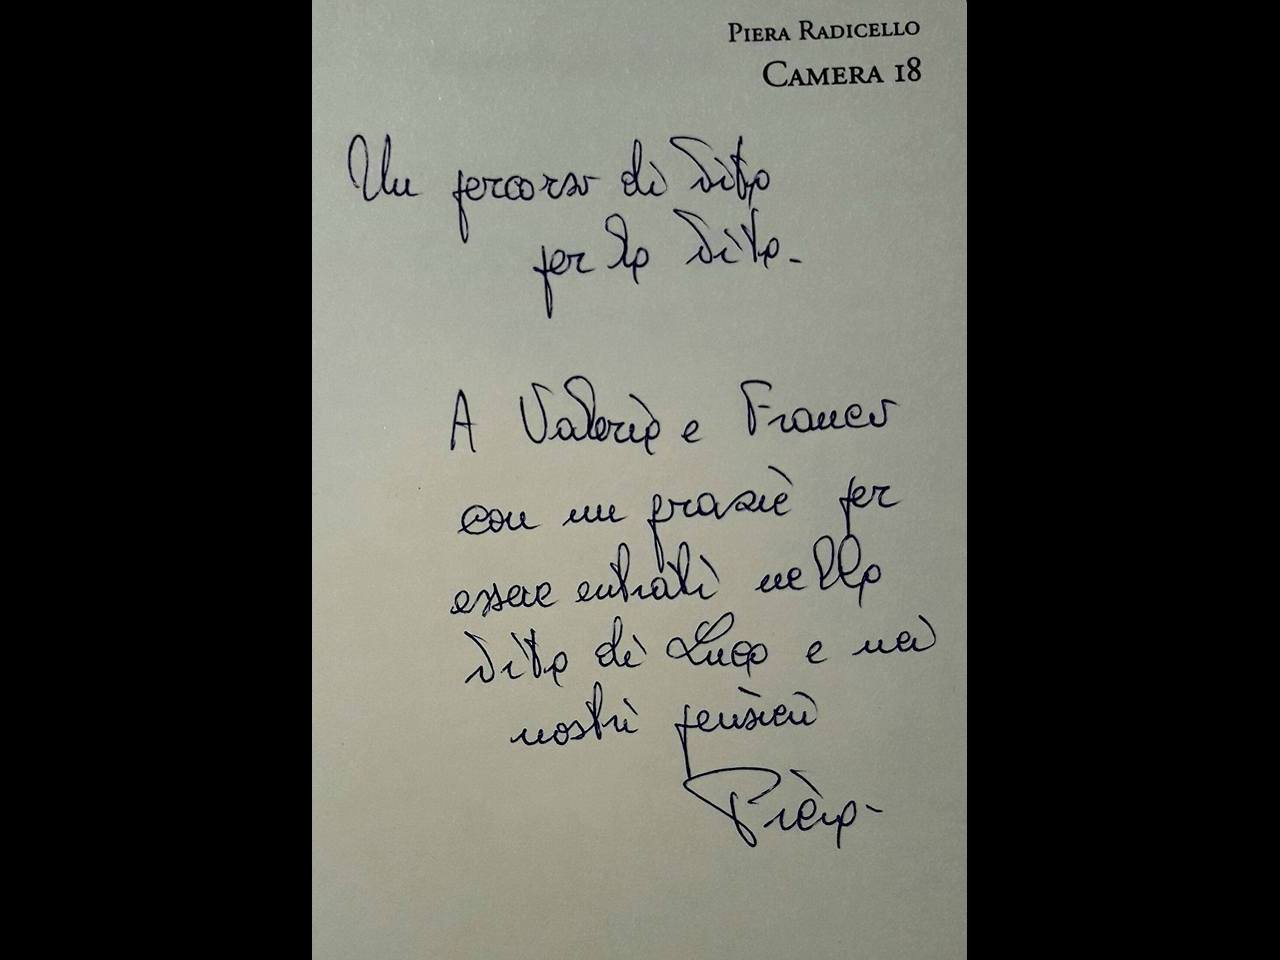 Piera Radicello
Camera 18
Un percorso di vita
per la vita.
A Valeria e Franco
con un grazie per
essere entrati nella
vita di Luca e nei
nostri pensieri
Piera